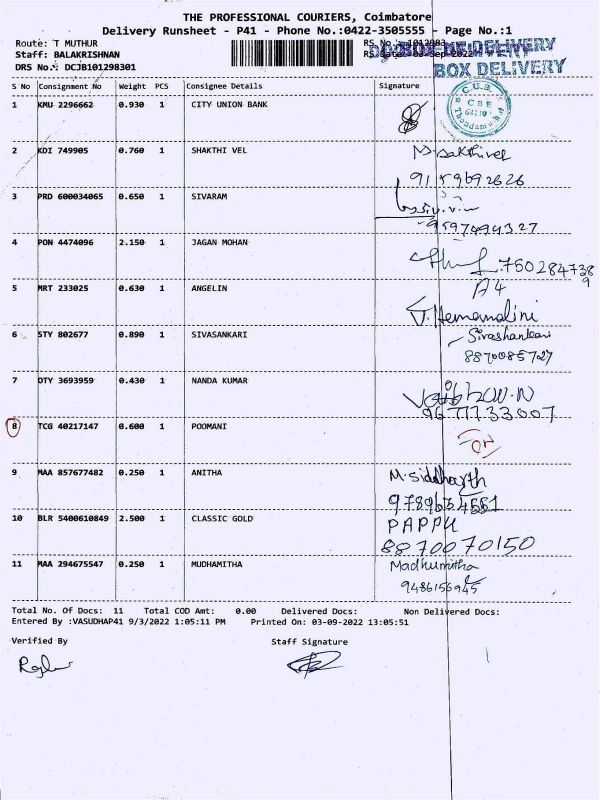 THE PROFESSIONAL COURIERS, Coimbatore
Delivery Runsheet - P41 - Phone No.:0422-3505555 - Page No.:1
Route: T MUTHUR
Staff: BALAKRISHNAN
DRS No.: DCJB101298301
BOX DELIVERY
S No Consignment No Weight PCS Consignee Details Signature
1 KMU 2296662 0.930 1 CITY UNION BANK
C.U.B.
2 KDI 749905 0.760 1 SHAKTHI VEL M. Sakthivel
9159692626
3 PRD 600034065 0.650 1 SIVARAM
9597494327
4 PON 4474096 2.150 1 JAGAN MOHAN
5 MRT 233025 0.630 1 ANGELIN A4
T. Hemamalini
6 STY 802677 0.890 1 SIVASANKARI Sivashankari
8870085727
7 DTY 3693959 0.430 1 NANDA KUMAR
9677733007
8 TCG 40217147 0.600 1 POOMANI
9 MAA 857677482 0.250 1 ANITHA M. Siddharth
9789634551
10 BLR 5400610849 2.500 1 CLASSIC GOLD PAPPU
8870070150
11 MAA 294675547 0.250 1 MUDHAMITHA Madhumitha
9486156945
Total No. Of Docs: 11 Total COD Amt: 0.00 Delivered Docs: Non Delivered Docs:
Entered By :VASUDHAP41 9/3/2022 1:05:11 PM Printed On: 03-09-2022 13:05:51
Verified By Staff Signature